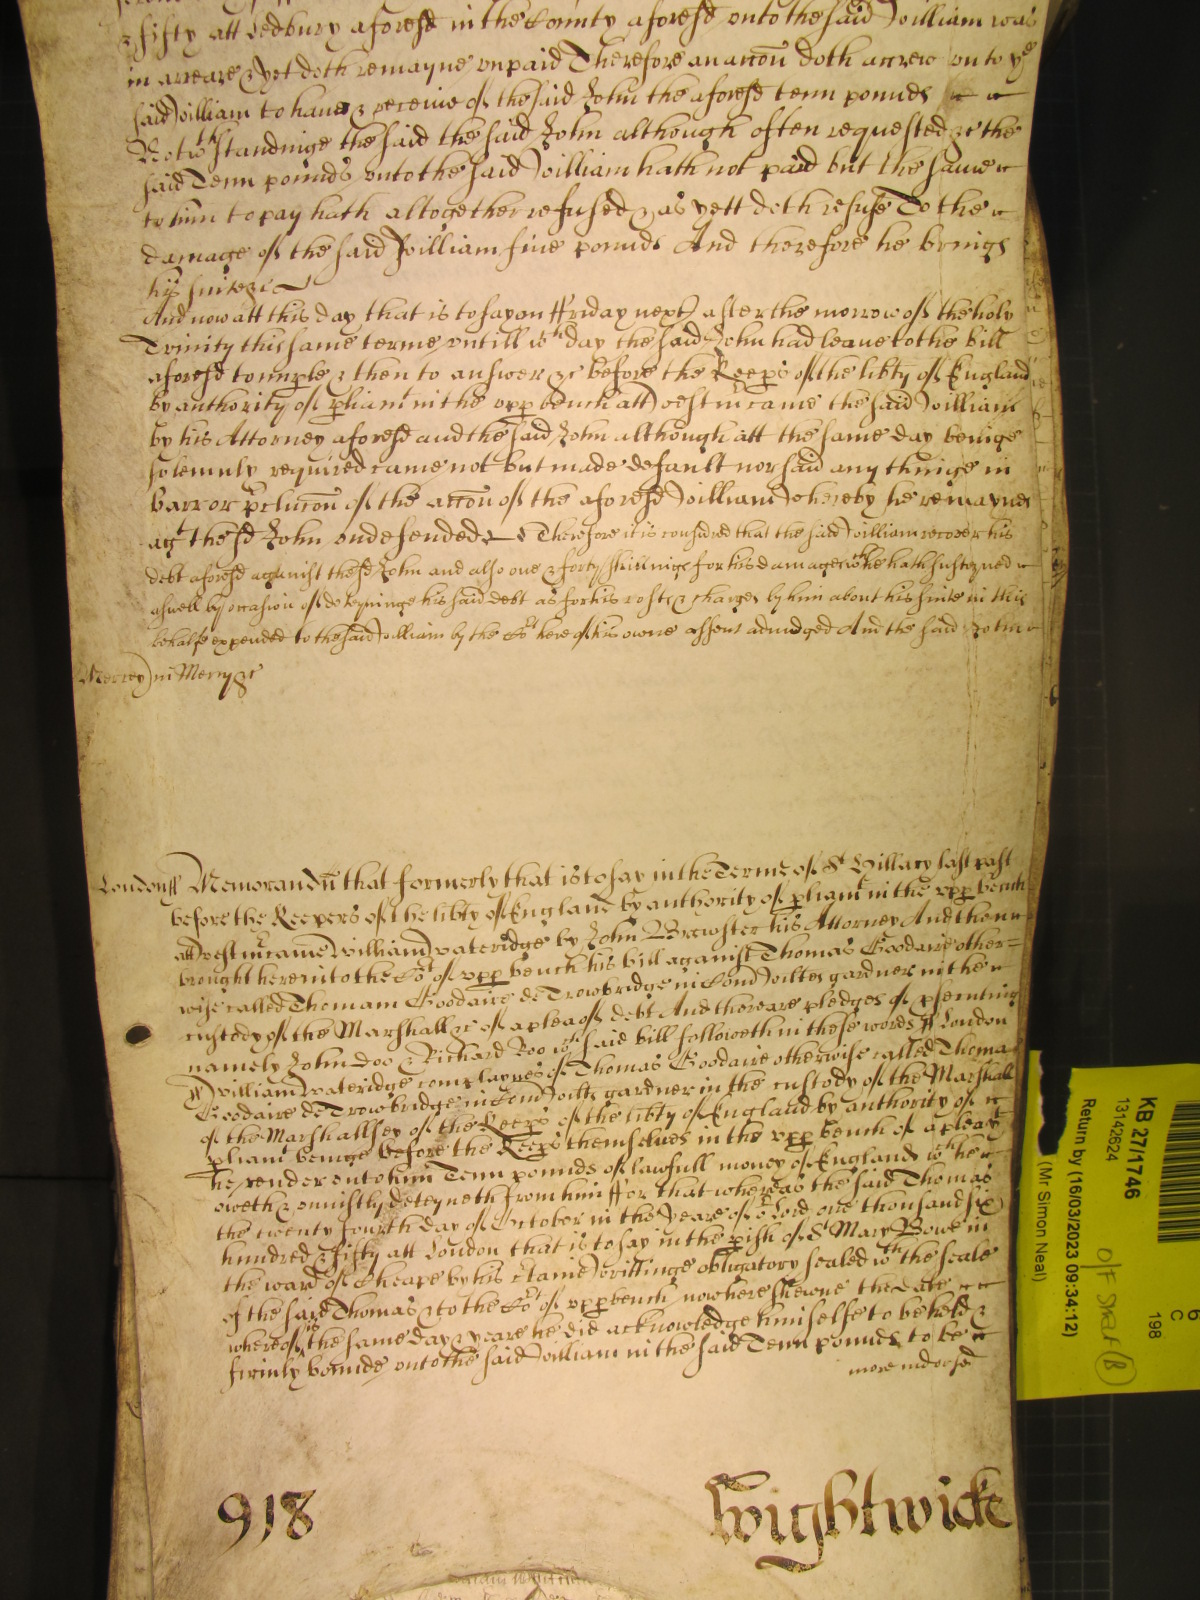 & fifty att Ledbury aforesd in the County aforesd unto the said William was
in arreare & yet doth remayne unpaid Therefore an accon doth accrew unto ye
said William to have & receive of the said John the aforesd tenn pounds
Notwthstandinge the said the said John although often requested &c the
said Tenn pounds unto the said William hath not paid but the same
to him to pay hath altogether refused & as yett doth refuse To the
damage of the said William five pounds And therefore he brings
his suite &c
And now att this day that is to say on ffriday next after the morrow of the holy
Trinity this same terme untill wch day the said John had leave to the bill
aforesd to imple & then to answer &c before the Keeps of the libty of England
by authority of pliamt in the upp bench att Westmr came the said William
by his Attorney aforesd and the said John although att the same day beinge
solemnly required came not but made default nor said any thinge in
barr or pclucon of the accon of the aforesd William Whereby he remaynes
agt the sd John undefended Therefore it is considred that the said William recover his
debt aforesd against the sd John and also one & forty shillings for his damages wch he hath susteyned
aswell by occasion of deteyninge his said debt as for his costs & charges by him about his suite in this
behalfe expended to the said William by the Cot here of his owne assent adiudged And the said John
Mercey in Mercy &c
London ff Memorandu that formerly that is to say in the Terme of St Hillary last past
before the Keepers of the libty of England by authority of pliamt in the upp bench
att Westmr came William Wateridge by John Brewster his Attorney And then
brought here into the Cot of upp bench his bill against Thomas Goodaire other=
wise called Thomam Goodaire de Trowbridge in Com Wiltes gardner in the
custody of the Marshall &c of a plea of debt And there are pledges of psecuting
namely John Doo & Richard Roo wch said bill followeth in these words ff London
ff William Wateridge complaynes of Thomas Goodaire otherwise called Thomam
Goodaire de Trowbridge in Com Wilts gardner in the custody of the Marshall
of the Marshallsey of the Keeps of the libty of England by authority of
pliamt beinge before the Keeps themselves in the upp bench of a plea yt
he render unto him Tenn pounds of lawfull money of England wch he
oweth & uniustly deteyneth from him ffor that whereas the said Thomas
the twenty fourth day of October in the yeare of or Lord one thousand six
hundred & fifty att London that is to say in the pish of St Mary Bowe in
the ward of Cheape by his ctaine writtinge obligatory sealed wth the seale
of the said Thomas & to the Cot of upp bench now here shewne the date
whereof is the same day & yeare he did acknowledge himselfe to be held &
firmly bounde unto the said William in the said Tenn pounds to be
more indorsed
918
Wightwicke
KB 27/1746
13142624
Return by (16/03/2023 09:34:12)
(Mr Simon Neal)
C
198